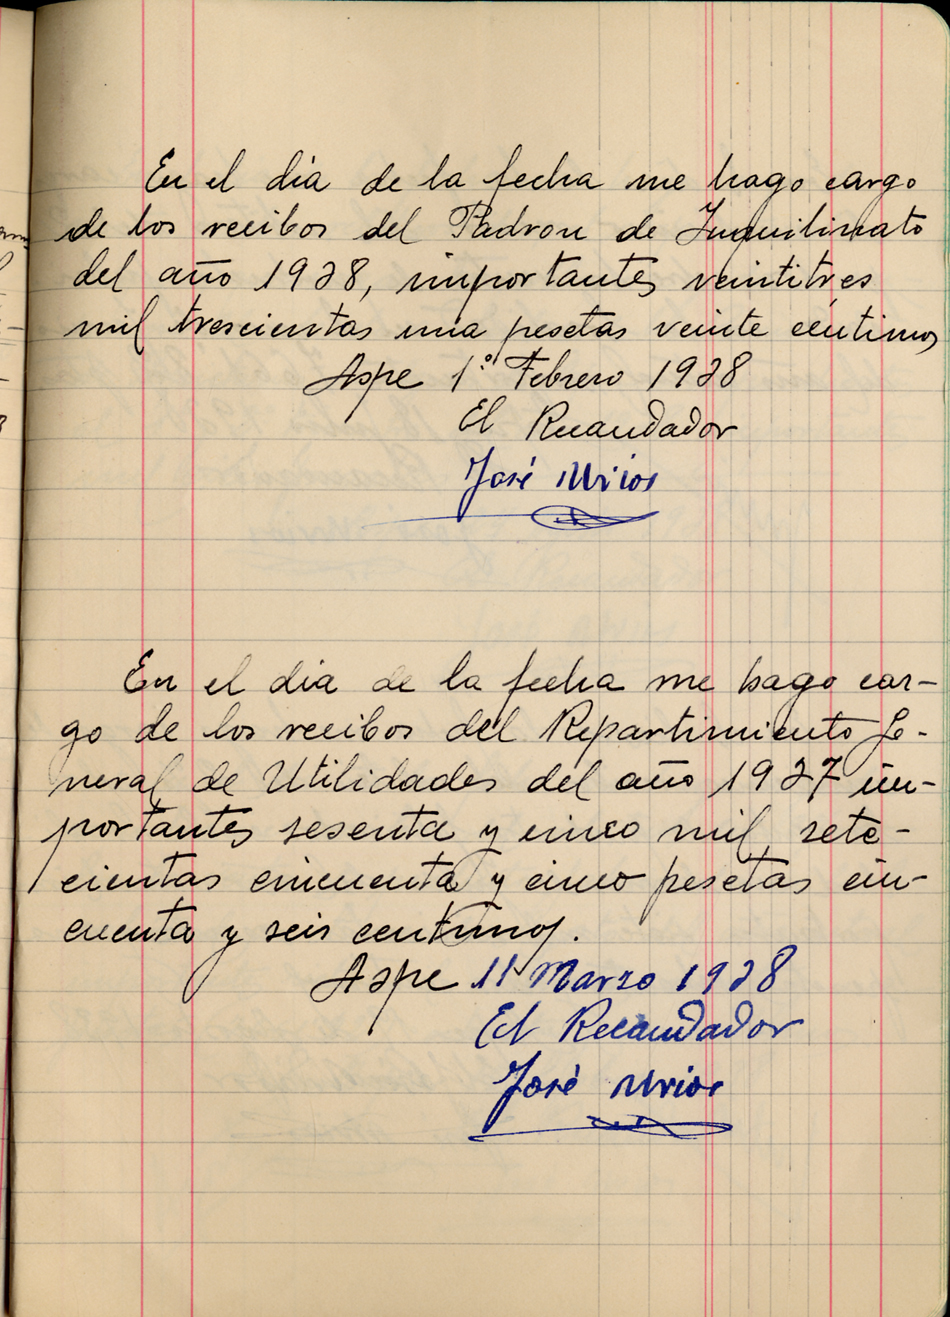 En el dia de la fecha me hago cargo
de los recibos del Padron de Inquilinato
del año 1928, importantes veintitres
mil trescientas una pesetas veinte céntimos
Aspe 1º. Febrero 1928
El Recaudador
José Urios
En el dia de la fecha me hago car-
go de los recibos del Repartimiento Ge-
neral de Utilidades del año 1927 im-
portantes sesenta y cinco mil sete-
cientas cincuenta y cinco pesetas cin-
cuenta y seis centimos.
Aspe 11 Marzo 1928
El Recaudador
José Urios